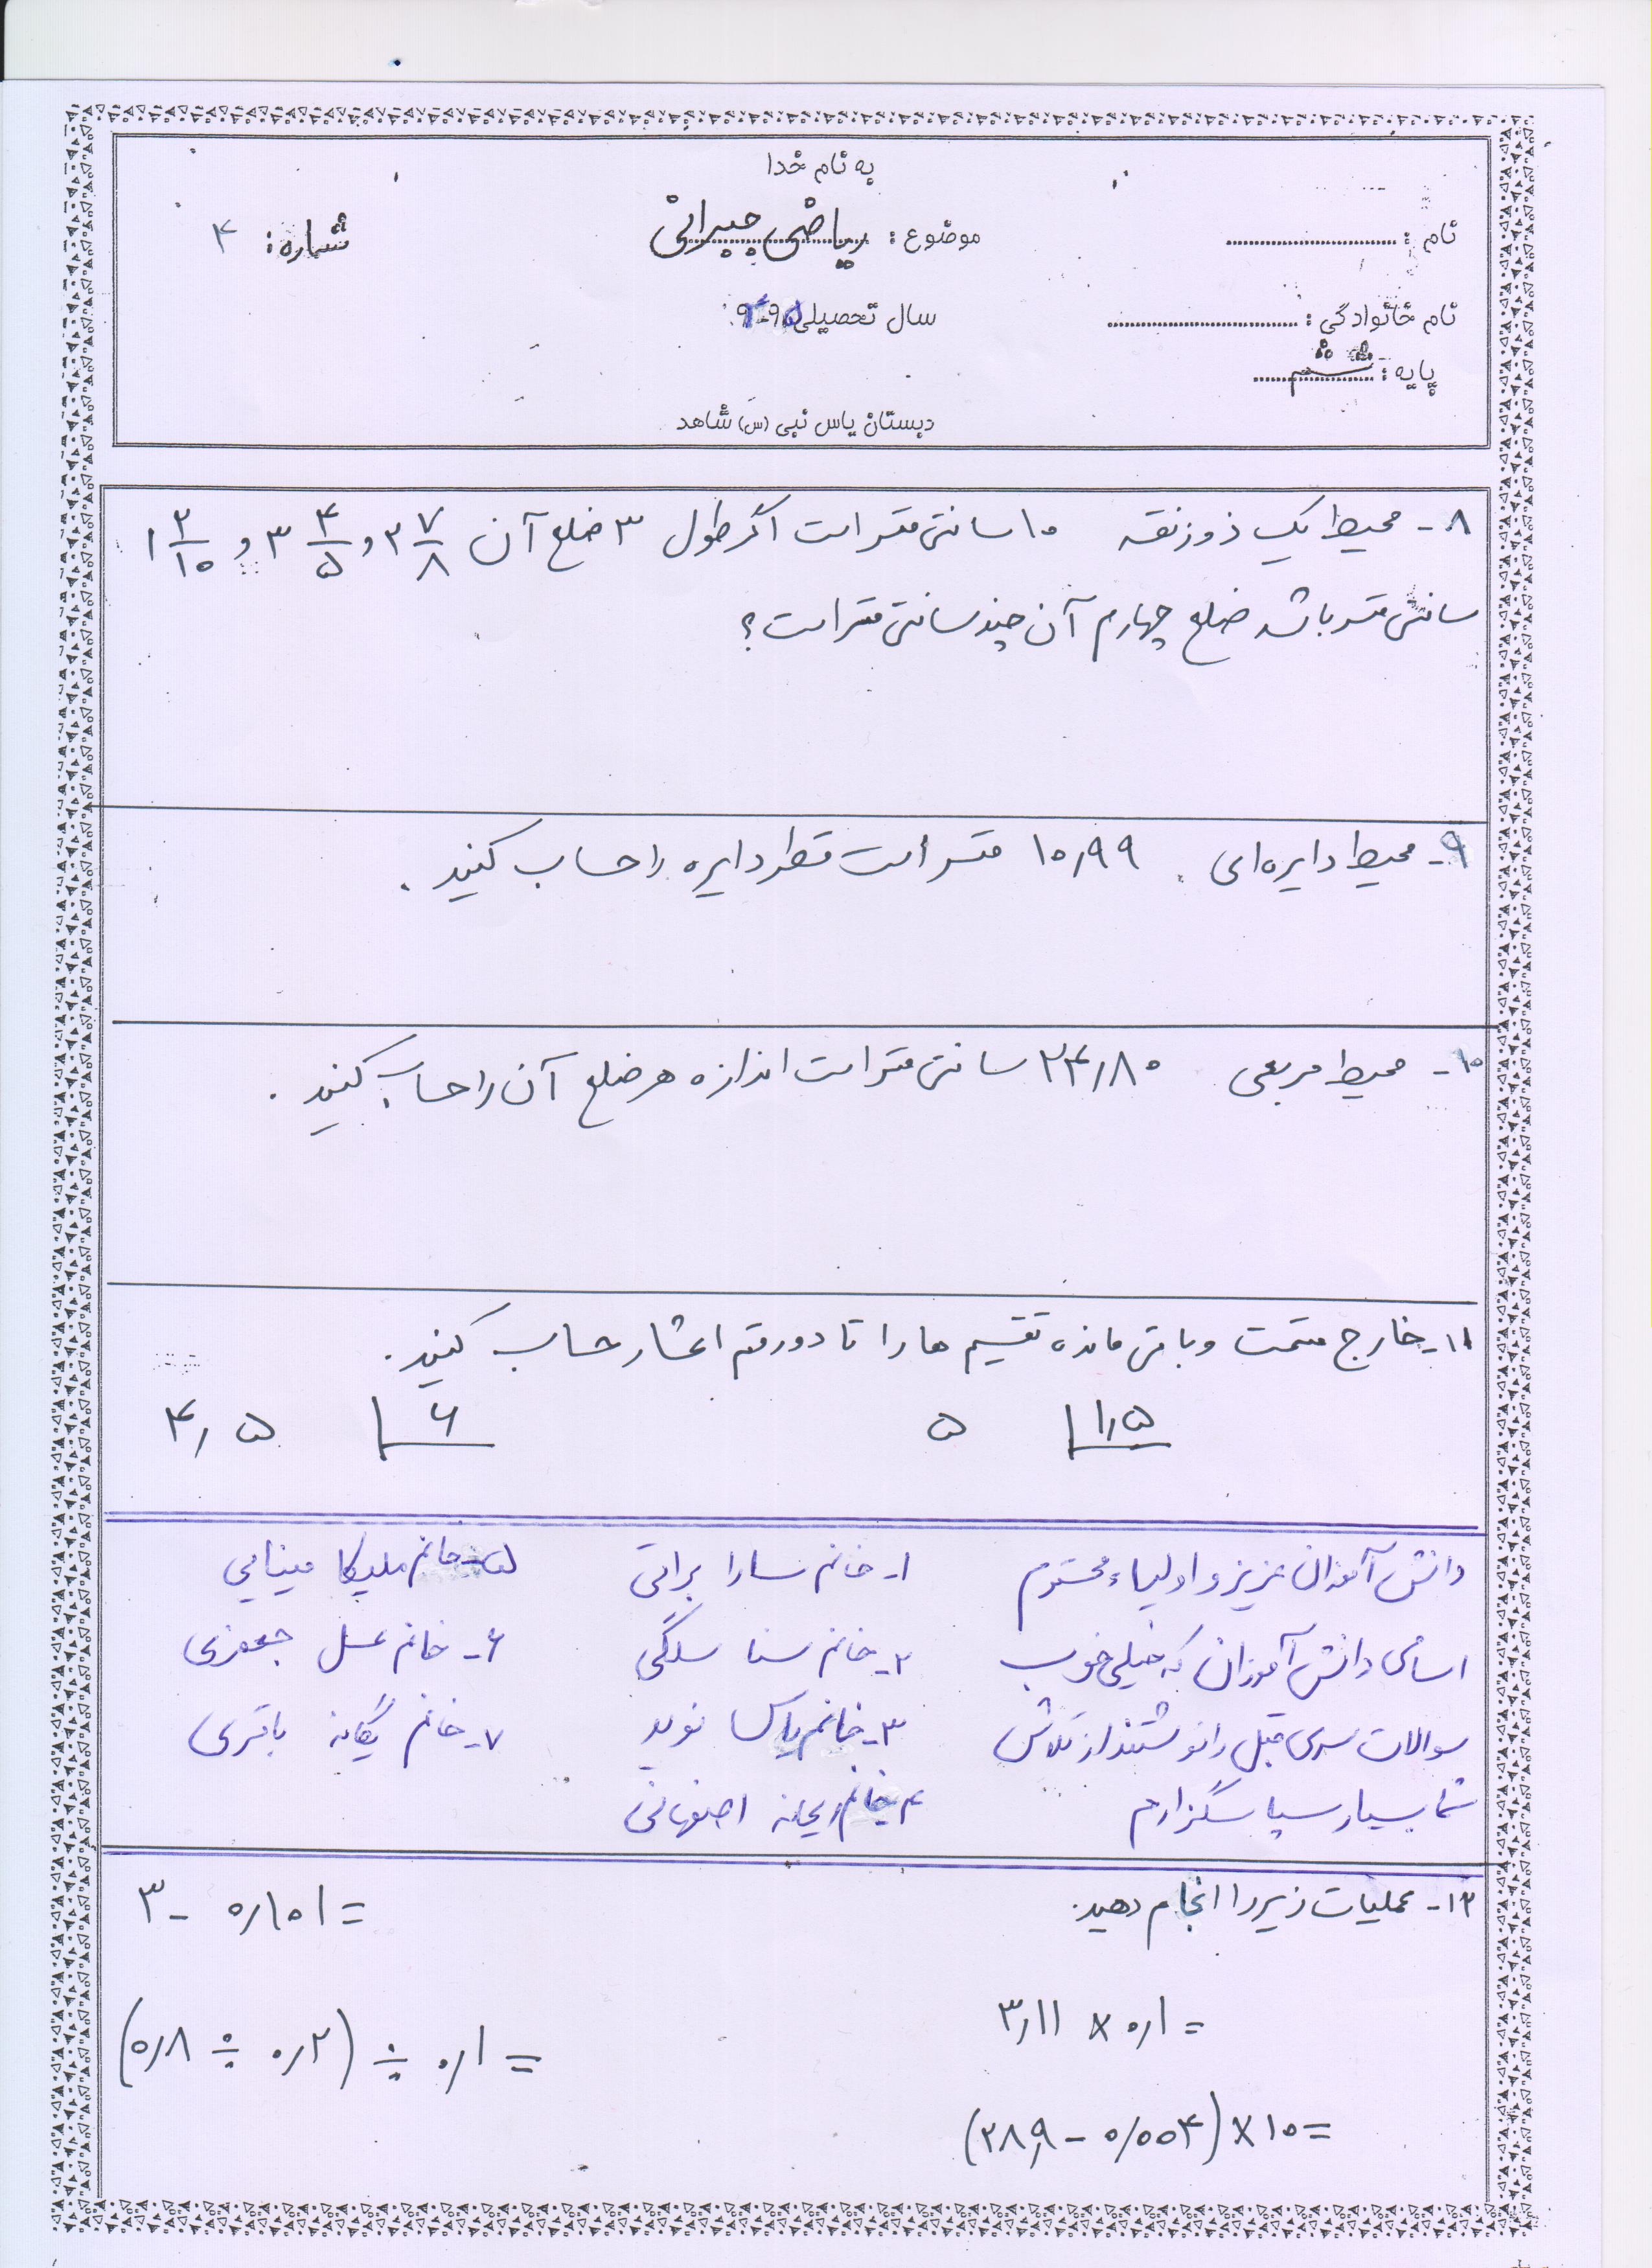 به نام خدا
نام : موضوع : ریاضی جبرانی شماره : ۴
نام خانوادگی : سال تحصیلی ۹۵-۹۴
پایه : ششم
دبستان یاس نبی (س) شاهد
۸- محیط یک ذوزنقه ۱۰ سانتی متر است اگر طول ۳ ضلع آن ۲ ۷/۸ و ۳ ۴/۵ و ۱ ۳/۱۰
سانتی متر باشد ضلع چهارم آن چند سانتی متر است؟
۹- محیط دایره ای ۱۰٫۹۹ متر است قطر دایره را حساب کنید.
۱۰- محیط مربعی ۲۴٫۸۰ سانتی متر است اندازه هر ضلع آن را حساب کنید.
۱۱- خارج قسمت و باقی مانده تقسیم ها را تا دو رقم اعشار حساب کنید.
۵ | ۱٫۵ ۴٫۵ | ۶
دانش آموزان عزیز و اولیاء محترم ۱- خانم سارا براتی ۵- خانم ملیکا مینایی
اسامی دانش آموزان که خیلی خوب ۲- خانم سنا سلگی ۶- خانم عسل جعفری
سوالات سری قبل را نوشتند از تلاش ۳- خانم نوید ۷- خانم یگانه باقری
شما بسیار سپاسگزارم ۴- خانم ریحانه اصفهانی
۱۲- عملیات زیر را انجام دهید.
۳ - ۰٫۱۰۱ =
۳٫۱۱ × ۰٫۱ =
(۰٫۸ ÷ ۰٫۲) ÷ ۰٫۱ =
(۲۸٫۹ - ۰٫۰۰۴) × ۱۰ =